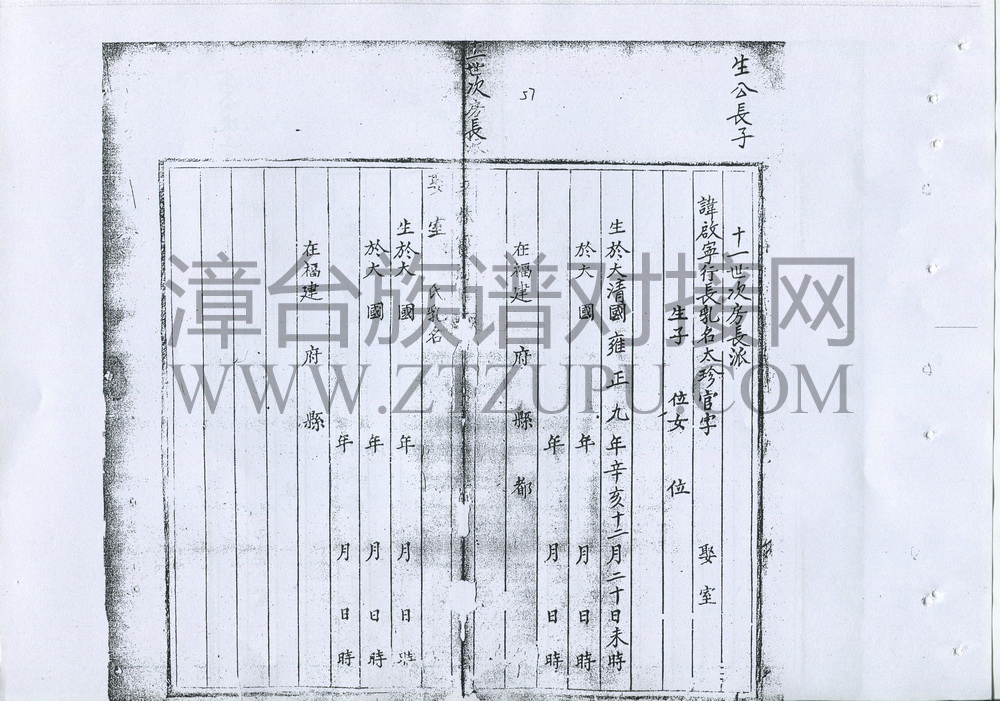 生公長子
57
十一世次房長派
諱啟寧行長乳名太珍官字 娶室
生子 位女 位
生於大清國雍正九年辛亥十二月二十日未時
於大 國 年 月 日時
年 月 日時
在福建 府 縣 都
世次房長
娶室 氏乳名
生於大 國 年 月 日時
於大 國 年 月 日時
年 月 日時
在福建 府 縣
漳台族谱对接网
WWW.ZTZUPU.COM